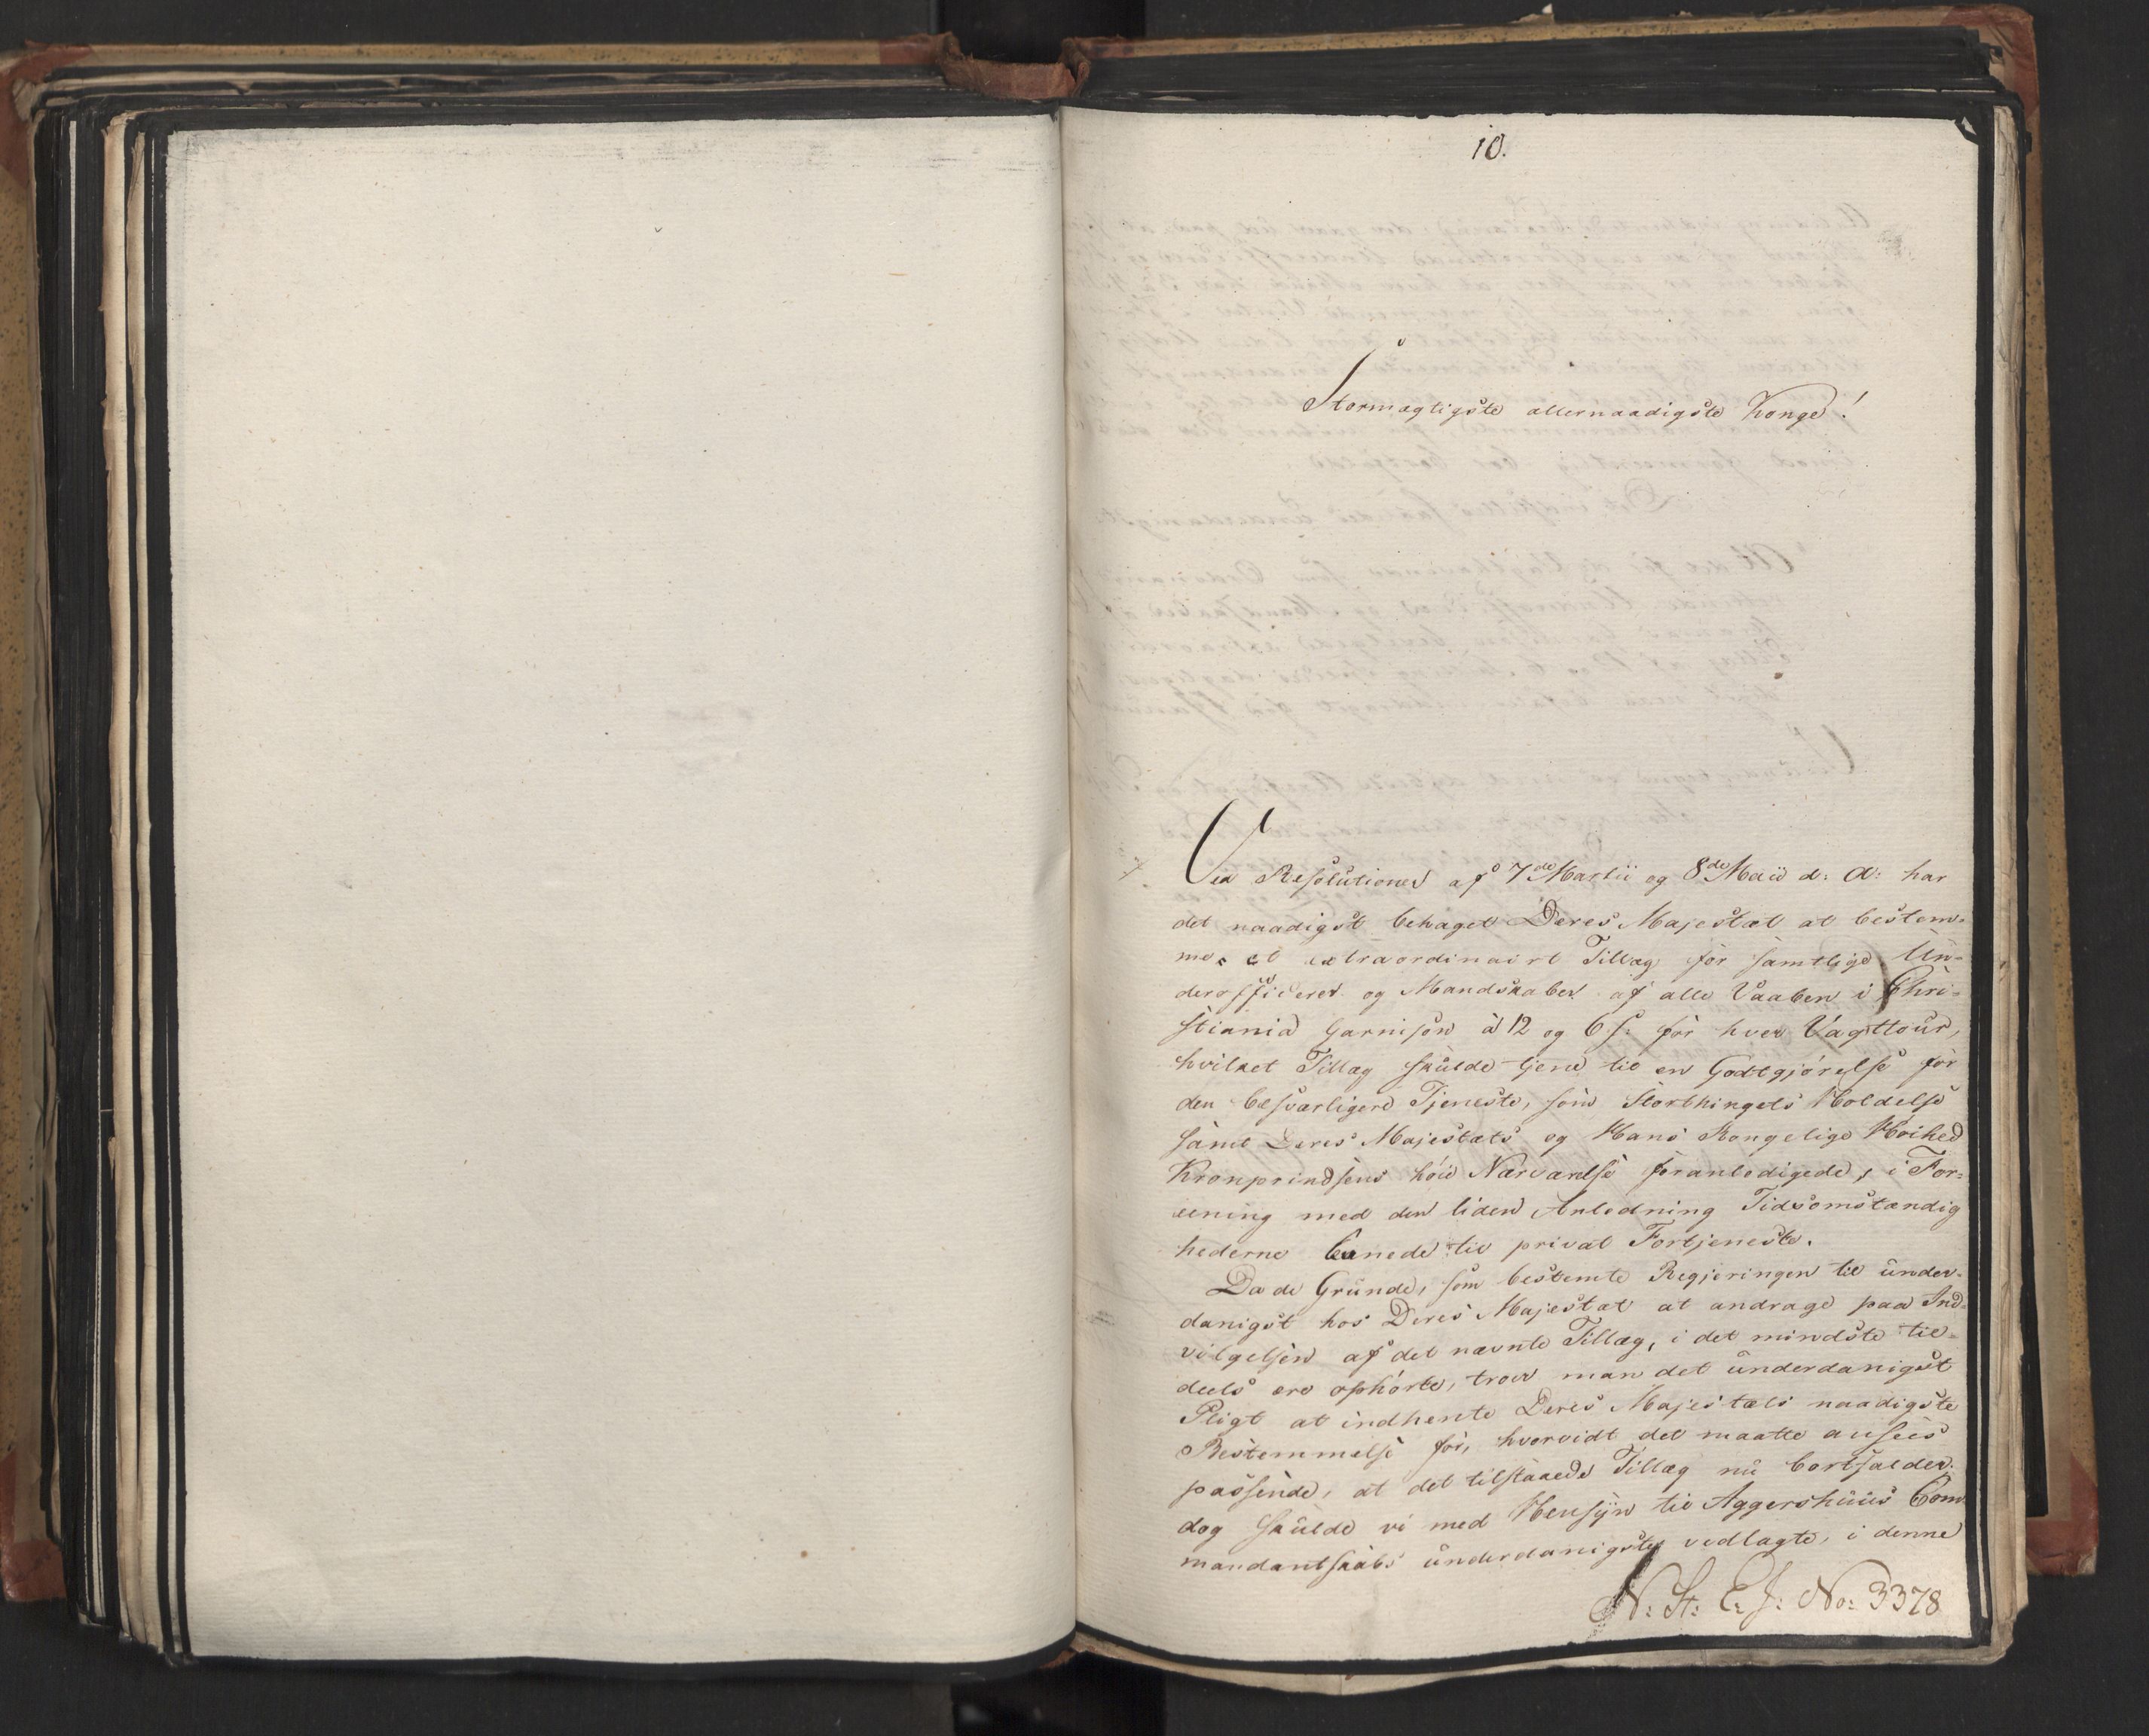 10.
Stormægtigste allernaadigste Konge!
Ved Resolutioner af 7de Martii og 8de Maii d: A: har
det naadigst behaget Deres Majestæt at bestem=
me et extraordinairt Tillæg for samtlige Un=
derofficerer og Mandskaber af alle Vaaben i Chri=
stiania Garnison à 12 og 6 s: for hver Vagttour,
hvilket Tillæg skulde tjene til en Godtgjørelse for
den besværligere Tjeneste, som Storthingets Holdelse
samt Deres Majestæts og Hans Kongelige Høihed
Kronprindsens høie Nærværelse foranledigede, i For=
eening med den liden Anledning Tidsomstændig
hederne levnede til privat Fortjeneste.
Da de Grunde, som bestemte Regjeringen til under=
danigst hos Deres Majestæt at andrage paa Ind=
vilgelsen af det nævnte Tillæg, i det mindste til=
deels ere ophørte, troer man det underdanigst
Pligt at indhente Deres Majestæts naadigste
Bestemmelse for, hvorvidt det maatte ansees
passende, at det tilstaaede Tillæg nu bortfalder.
dog skulde vi med Hensyn til Aggershuus Com
mandantskabs underdanigste vedlagte, i denne
N: St: E: J: No: 3378